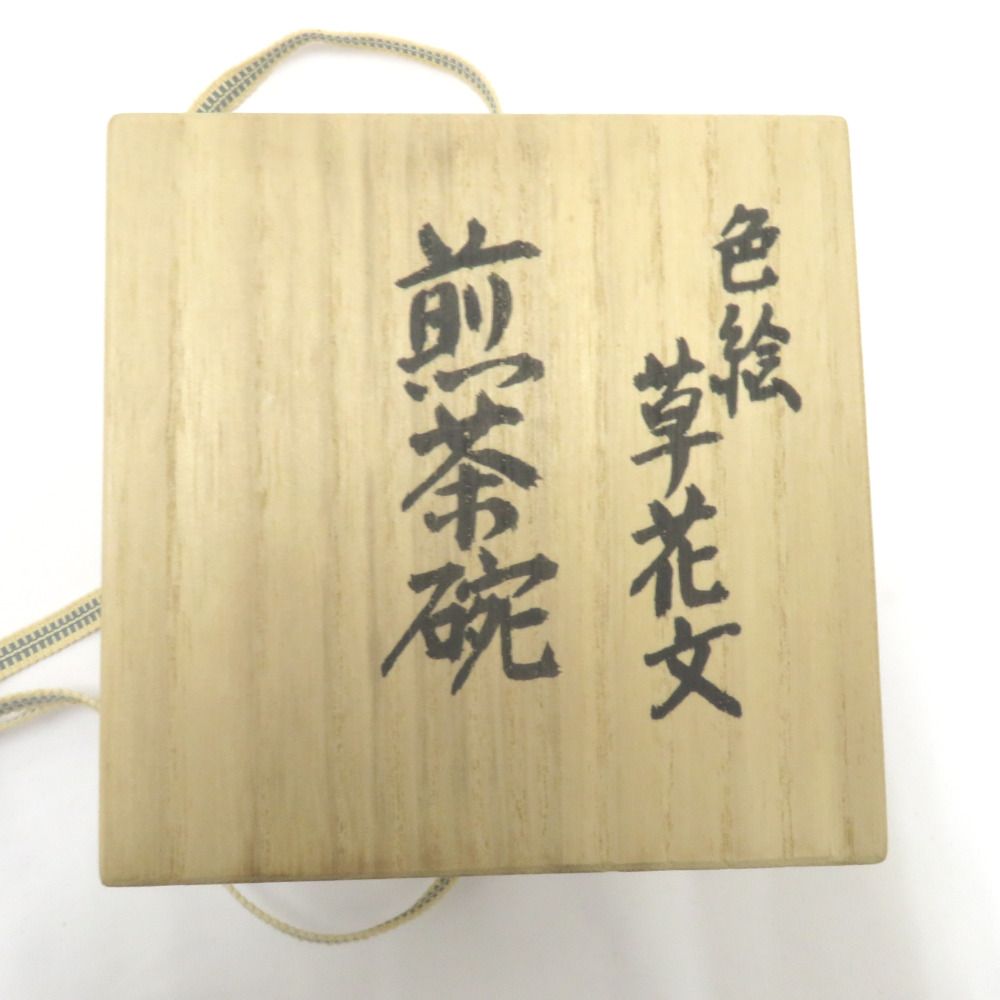 色絵
草花文
煎茶碗